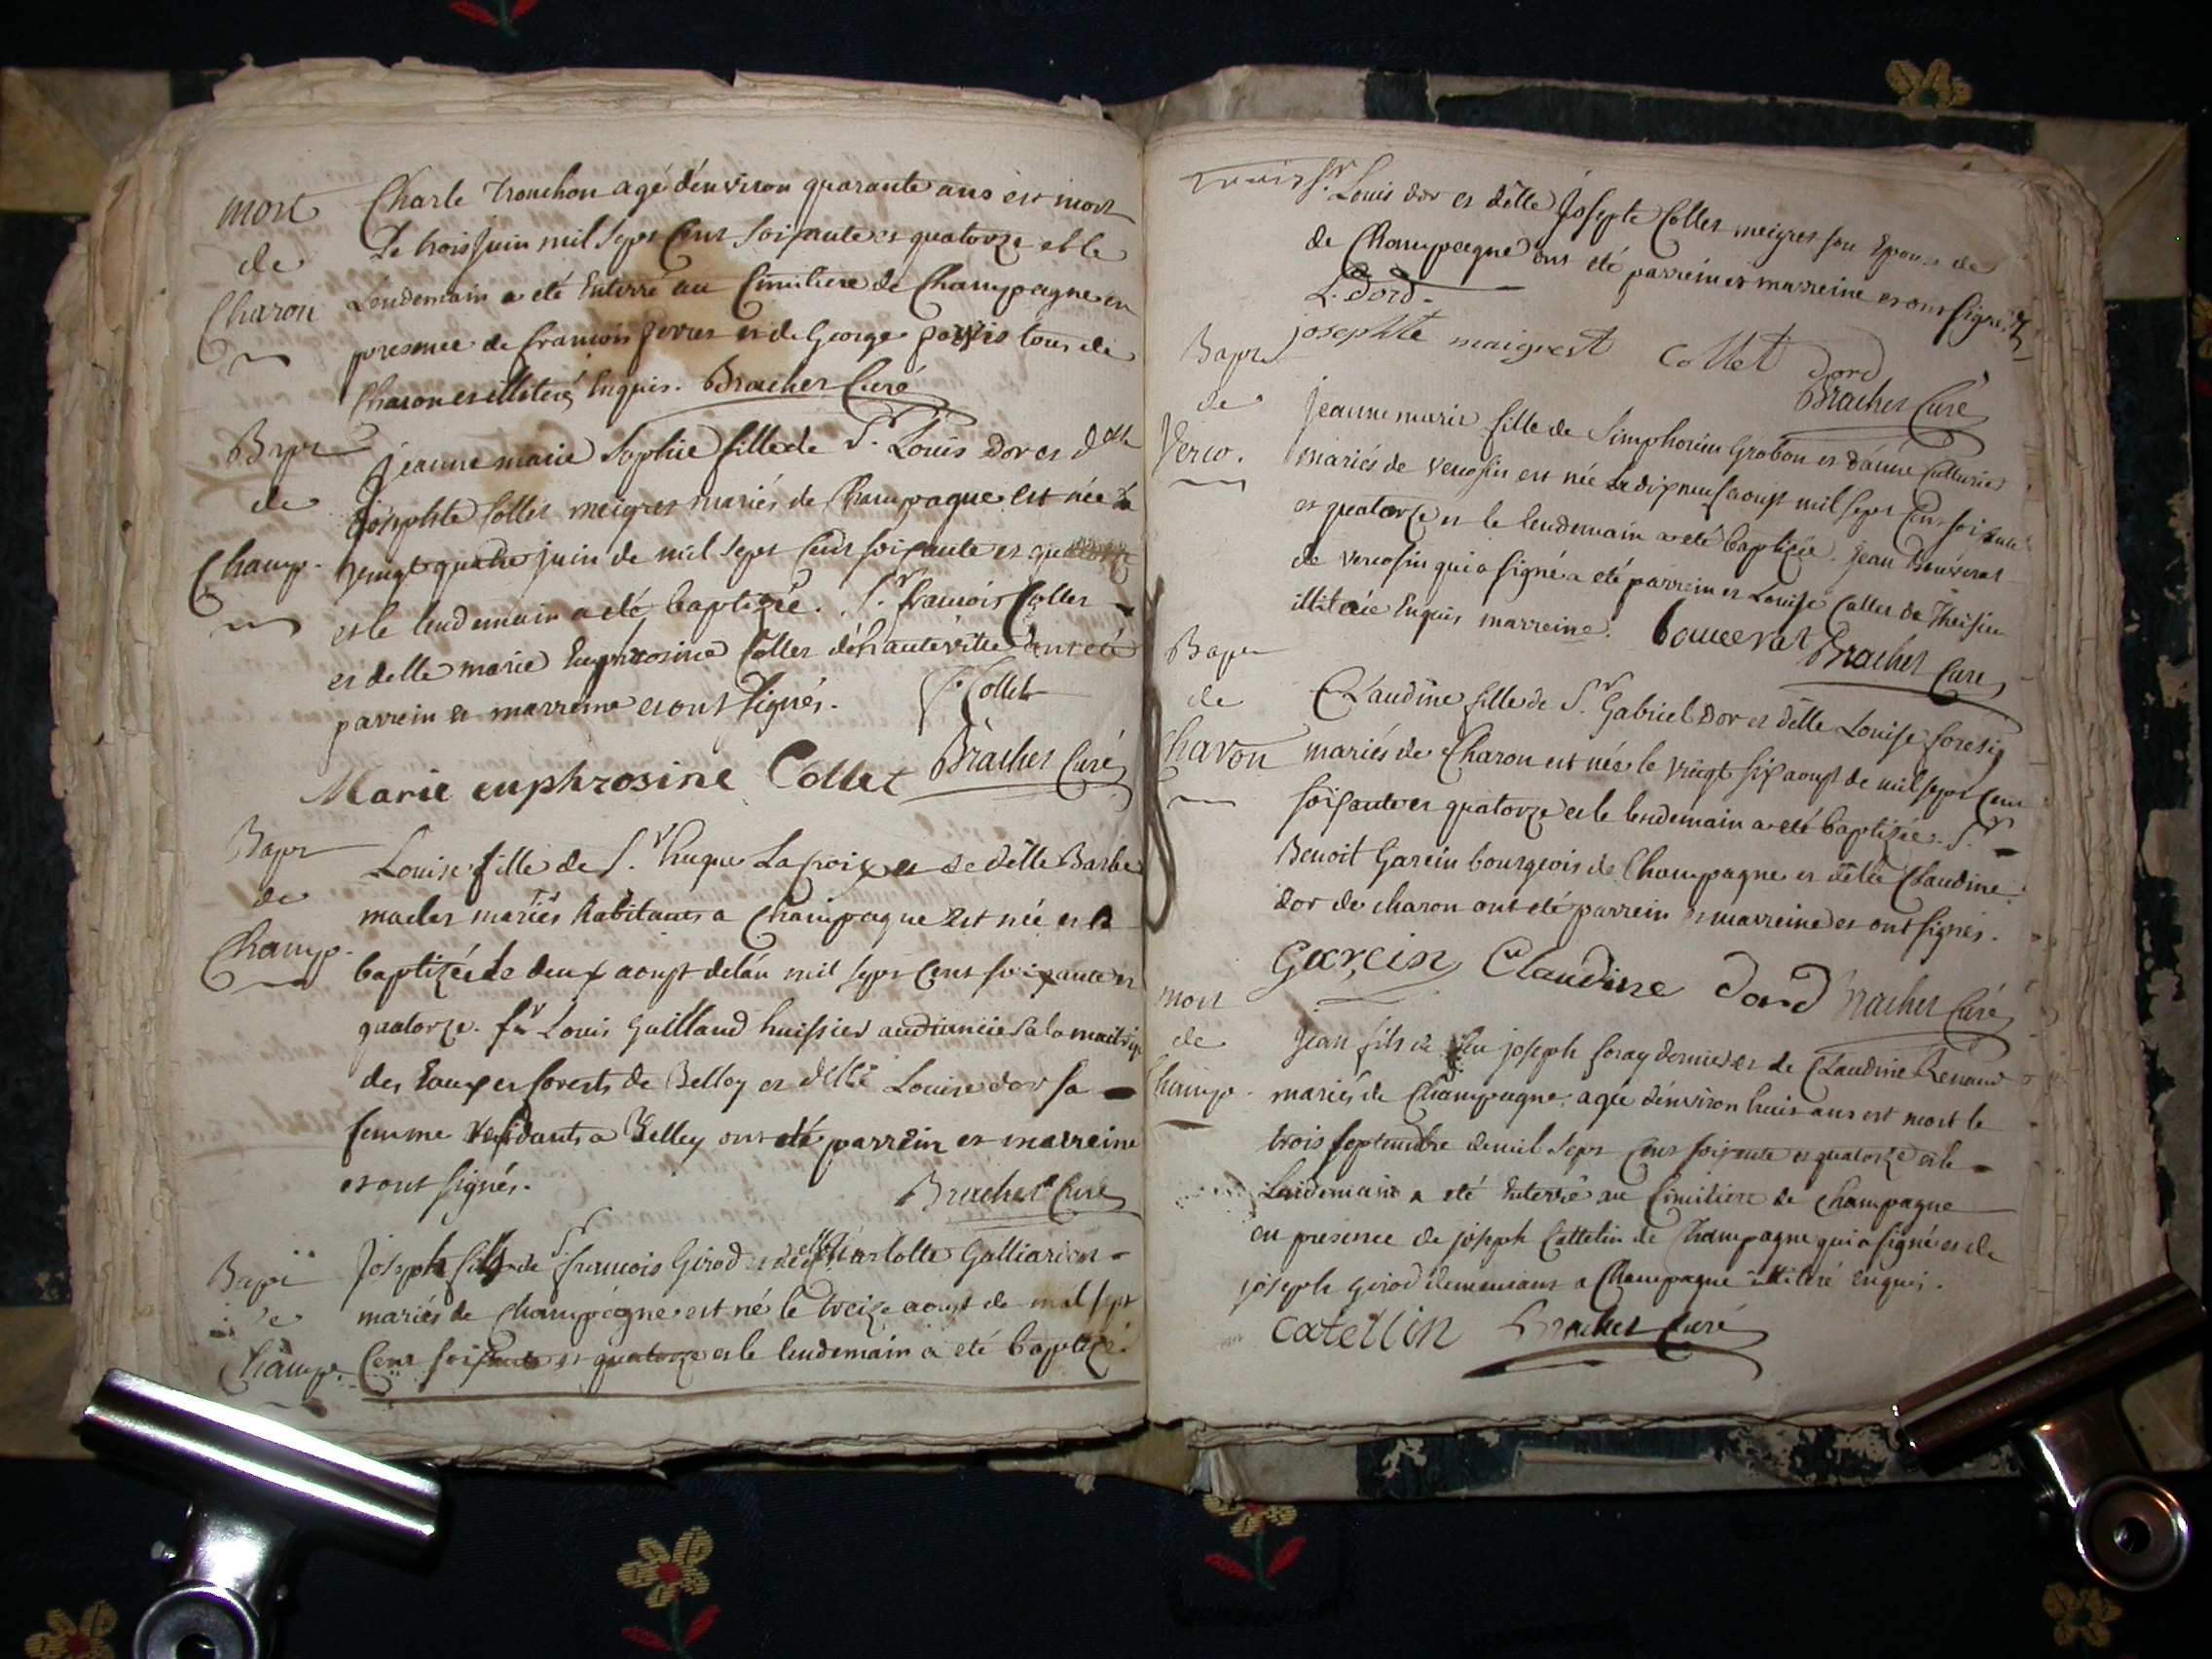 mort
de
Charon
Charle Tronchon agé dénviron quarante ans est mort
Le trois juin mil sept Cent soixante et quatorze et le
Lendemain a eté Enterré au Cimitiere de Champagne en
presence de francois et de George tous de
Charon et illiteré Enquis. Bracher Curé
Bapt
de
Champ.
jeanne marie Sophie fille de Sr. Louis dor et dlle
Josephte Collet meigret mariés de Champagne est née le
vingt quatre juin de mil sept Cent soixante et quatorze
et le lendemain a eté baptizée. Sr. francois Collet
et delle marie Euphrosine Collet d'hauteville ont eté
parrein et marreine et ont signés. f. Collet
Marie euphrosine Collet Bracher Curé
Bapt
de
Champ.
Louise fille de Sr. hugue La Croix et de délle Barbe
maclet mariés habitants a Champagne est née et a
baptizée le deux aoust delán mil sept Cent soixante et
quatorze. Sr Louis Guilland huissier audiancier a la maitrise
des Eaux et forests de Belley et délle Louise dor sa
femme residants a Belley ont eté parrein et marreine
et ont signés.
Bracher Curé
Bapt
de
Champ.
Joseph fils de Sr francois Girod et de dlle Charlotte Galliarion
mariés de Champagne est né le treize aoust de mil sept
Cent soixante et quatorze et le lendemain a eté baptizé.
Sr. Louis dor et délle Josephte Collet meigret son Epouse de
de Champagne ont eté parrein et marreine et ont signé.
L. Dord.
josephte maigret Collet dord
Bracher Curé
Bapt
de
Verco.
Jeanne marie fille de Simphorien Grobon et dánne
mariés de vercosin est née le dix neuf aoust mil sept Cent soixante
et quatorze et le lendemain a eté baptizée. jean Bouverat
de vercosin qui a signé a eté parrein et Louise Collet de Theisin
illiterée Enquis marreine. bouverat Bracher Curé
Bapt
de
Charon
Claudine fille de Sr. Gabriel dor et délle Louise
mariés de Charon est née le vingt six aoust de mil sept Cent
soixante et quatorze et le lendemain a eté baptizée. Sr.
Benoit Garcin bourgeois de Champagne et délle Claudine
dor de charon ont eté parrein et marreine et ont signés.
Garcin Claudine dord Bracher Curé
mort
de
Champ.
Jean fils de feu joseph foray dernier et de Claudine Renaud
mariés de Champagne, agée dénviron huit ans est mort le
trois septembre de mil sept Cent soixante et quatorze et le
Lendemain a eté Enterré au Cimitiere de Champagne
en presence de joseph Cattelin de Champagne qui a signé et de
joseph girod demeurant a Champagne illiteré enquis.
catellin Bracher Curé